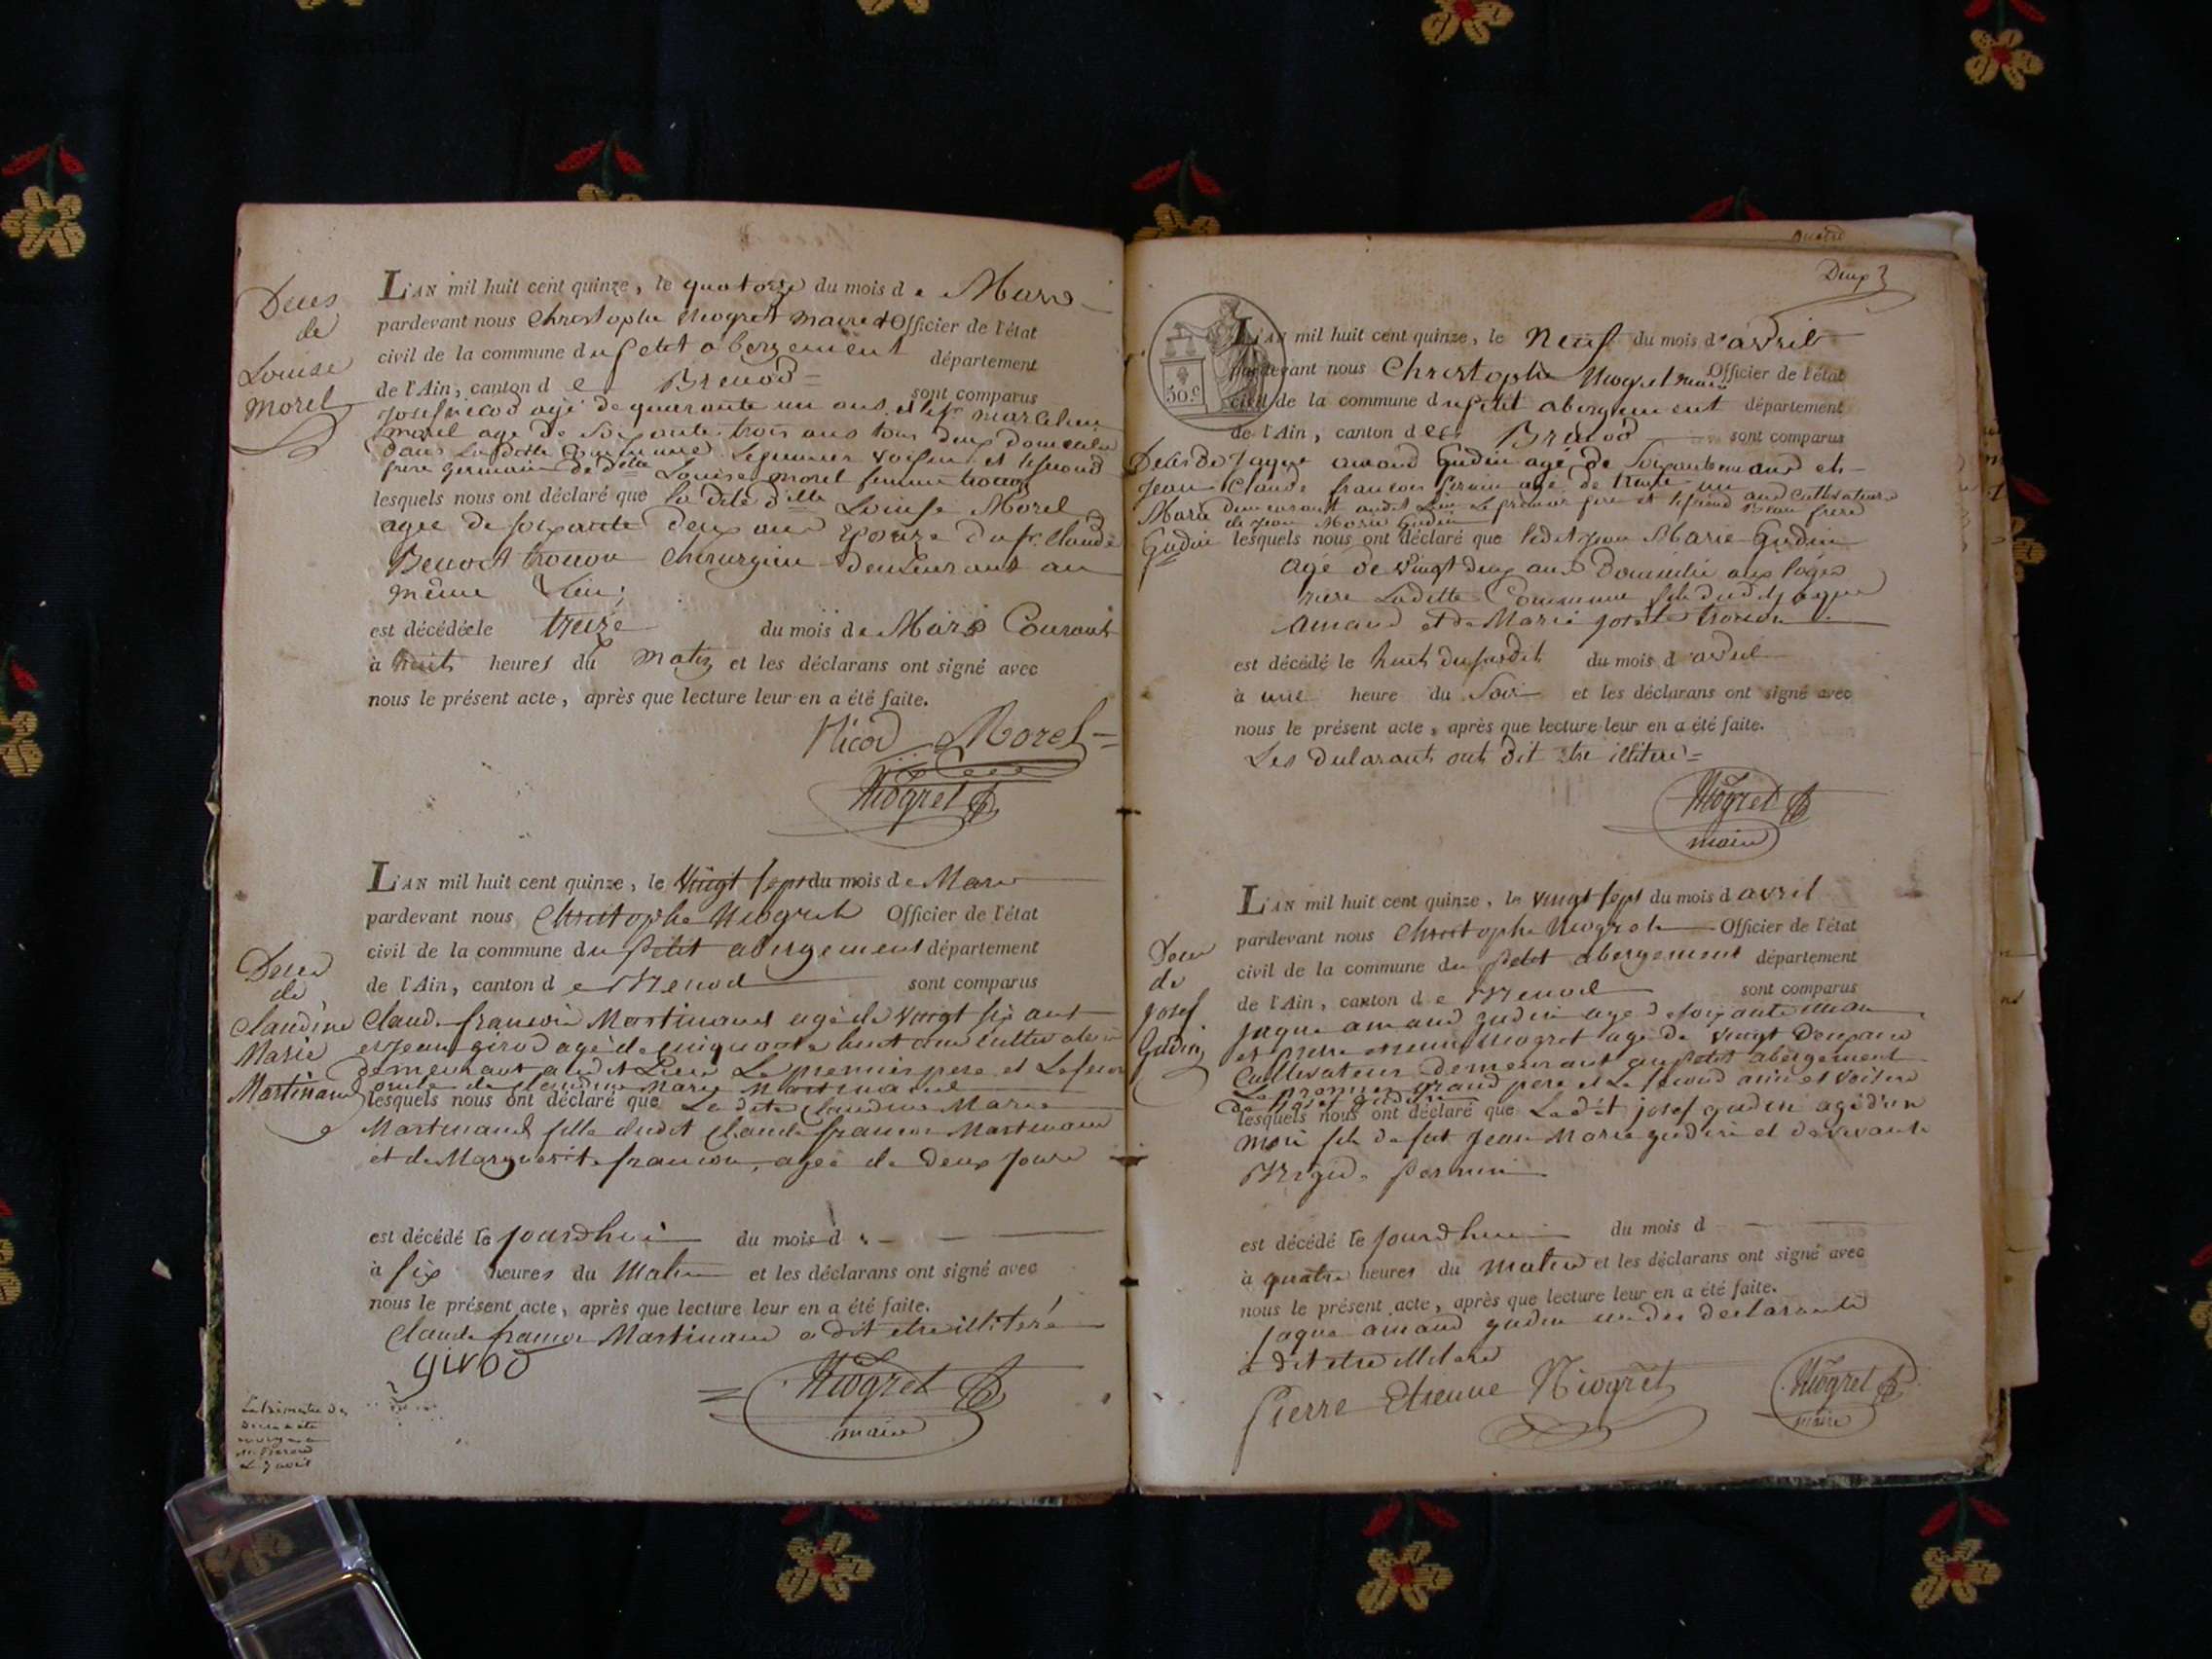 Deces
de
Louise
Morel
L'AN mil huit cent quinze, le quatorze du mois de Mars
pardevant nous Christophe Niogret maire et Officier de l'état
civil de la commune du petit abergement département
de l'Ain, canton de Brenod sont comparus
Josef nicod agé de quarante un ans et le sr. marcelin
morel age de Soixante trois ans tous deux domicilié
dans Ladette Commune Le premier voisin et le second
frere germain de delle Louise morel femme trocon
lesquels nous ont déclaré que la dite dlle Louise Morel
agee de soixante deux ans Epouze du sr. Claude
Benoit trocon Chirurgien Demeurant au
même Lieu;
est décédée le treize du mois de Mars Courant
à huit heures du matin et les déclarans ont signé avec
nous le présent acte, après que lecture leur en a été faite.
Nicod Morel
Niogret
Deces
de
Claudine
Marie
Martinand
L'AN mil huit cent quinze, le vingt sept du mois de Mars
pardevant nous Christophe Niogret Officier de l'état
civil de la commune du petit abergement département
de l'Ain, canton de Brenod sont comparus
Claude francois Martinand agé de vingt six ans
et Jean girod agé de cinquante huit ans cultivateurs
demeurant audit Lieu Le premier pere et Le second
oncle de claudine Marie Martinand
lesquels nous ont déclaré que La dite Claudine Marie
Martinand fille dudit Claude francois Martinand
et de Marguerite francon, agée de deux jours
est décédé le jourdhui du mois d
à six heures du Matin et les déclarans ont signé avec
nous le présent acte, après que lecture leur en a été faite.
Claude francois Martinand a dit etre illiteré
girod
Niogret
maire
le 7 avril
Deux
50.c
L'AN mil huit cent quinze, le Neuf du mois d'avril
pardevant nous Christophe Niogret maire Officier de l'état
civil de la commune du petit abergement département
de l'Ain, canton de Brenod sont comparus
Deces de
Jean
Marie
Gudin
Jaque amand Gudin agé de Soixante un ans et
Claude francois perrin agé de trente un ans Cultivateurs
demeurant audit Lieu Le premier pere et le second Beau frere
de Jean Marie Gudin
lesquels nous ont déclaré que ledit Jean Marie Gudin
agé de vingt deux ans Domicilié aux loges
riere Ladette Commune fils dud Jaque
amand et de Marie josete trocon
est décédé le huit du susdit du mois d'avril
à une heure du Soir et les déclarans ont signé avec
nous le présent acte, après que lecture leur en a été faite.
Les declarants ont dit etre illiteré
Niogret
maire
Deces
de
josef
Gudin
L'AN mil huit cent quinze, le vingt sept du mois d avril
pardevant nous Christophe Niogret Officier de l'état
civil de la commune du petit abergement département
de l'Ain, canton de Brenod sont comparus
Jaque amand gudin agé de soixante un an
et pierre etienne Niogret agé de vingt deux ans
Cultivateurs demeurant au petit abergement
Le premier grand pere et Le second ami et voisin
de josef gudin
lesquels nous ont déclaré que Ledit josef gudin agé d'un
mois fils de fut Jean Marie gudin et de vivante
Brigide perrin
est décédé le jourdhui du mois d
à quatre heures du matin et les déclarans ont signé avec
nous le présent acte, après que lecture leur en a été faite.
Jaque amand gudin un des declarants
a dit etre illiteré
Pierre Etienne Niogret
Niogret
maire